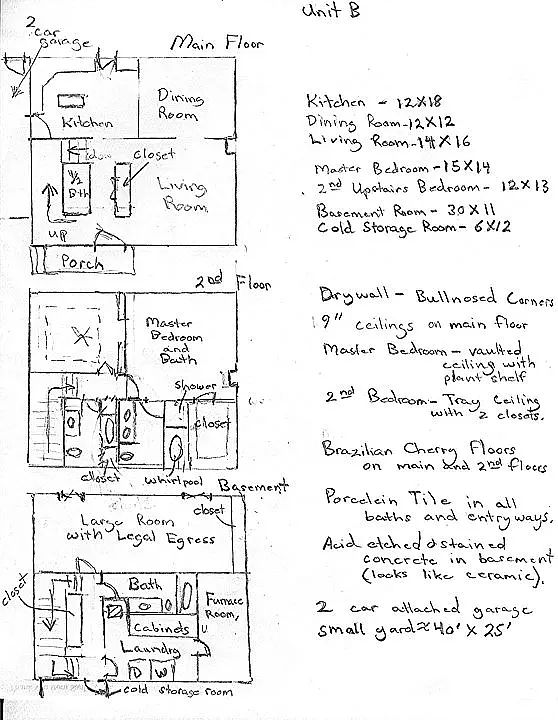 Unit B
2
car
garage
Main Floor
Dining
Room
Kitchen
closet
1/2
Bth
Living
Room
up
Porch
Kitchen - 12X18
Dining Room-12X12
Living Room-14X16
Master Bedroom-15X14
2nd Upstairs Bedroom- 12X13
Basement Room - 30X11
Cold Storage Room- 6X12
2nd Floor
Master
Bedroom
and
Bath
shower
closet
closet
whirlpool
Drywall - Bullnosed Corners
9" ceilings on main floor
Master Bedroom - vaulted
ceiling with
plant shelf
2nd Bedroom- Tray Ceiling
with 2 closets.
Brazilian Cherry Floors
on main and 2nd floors
Porcelein Tile in all
baths and entryways.
Acid etched & stained
concrete in basement
(looks like ceramic).
2 car attached garage
small yard ≈ 40' X 25'
Basement
closet
Large Room
with Legal Egress
closet
Bath
Furnace
Room,
Cabinets
Laundry
D W
cold storage room